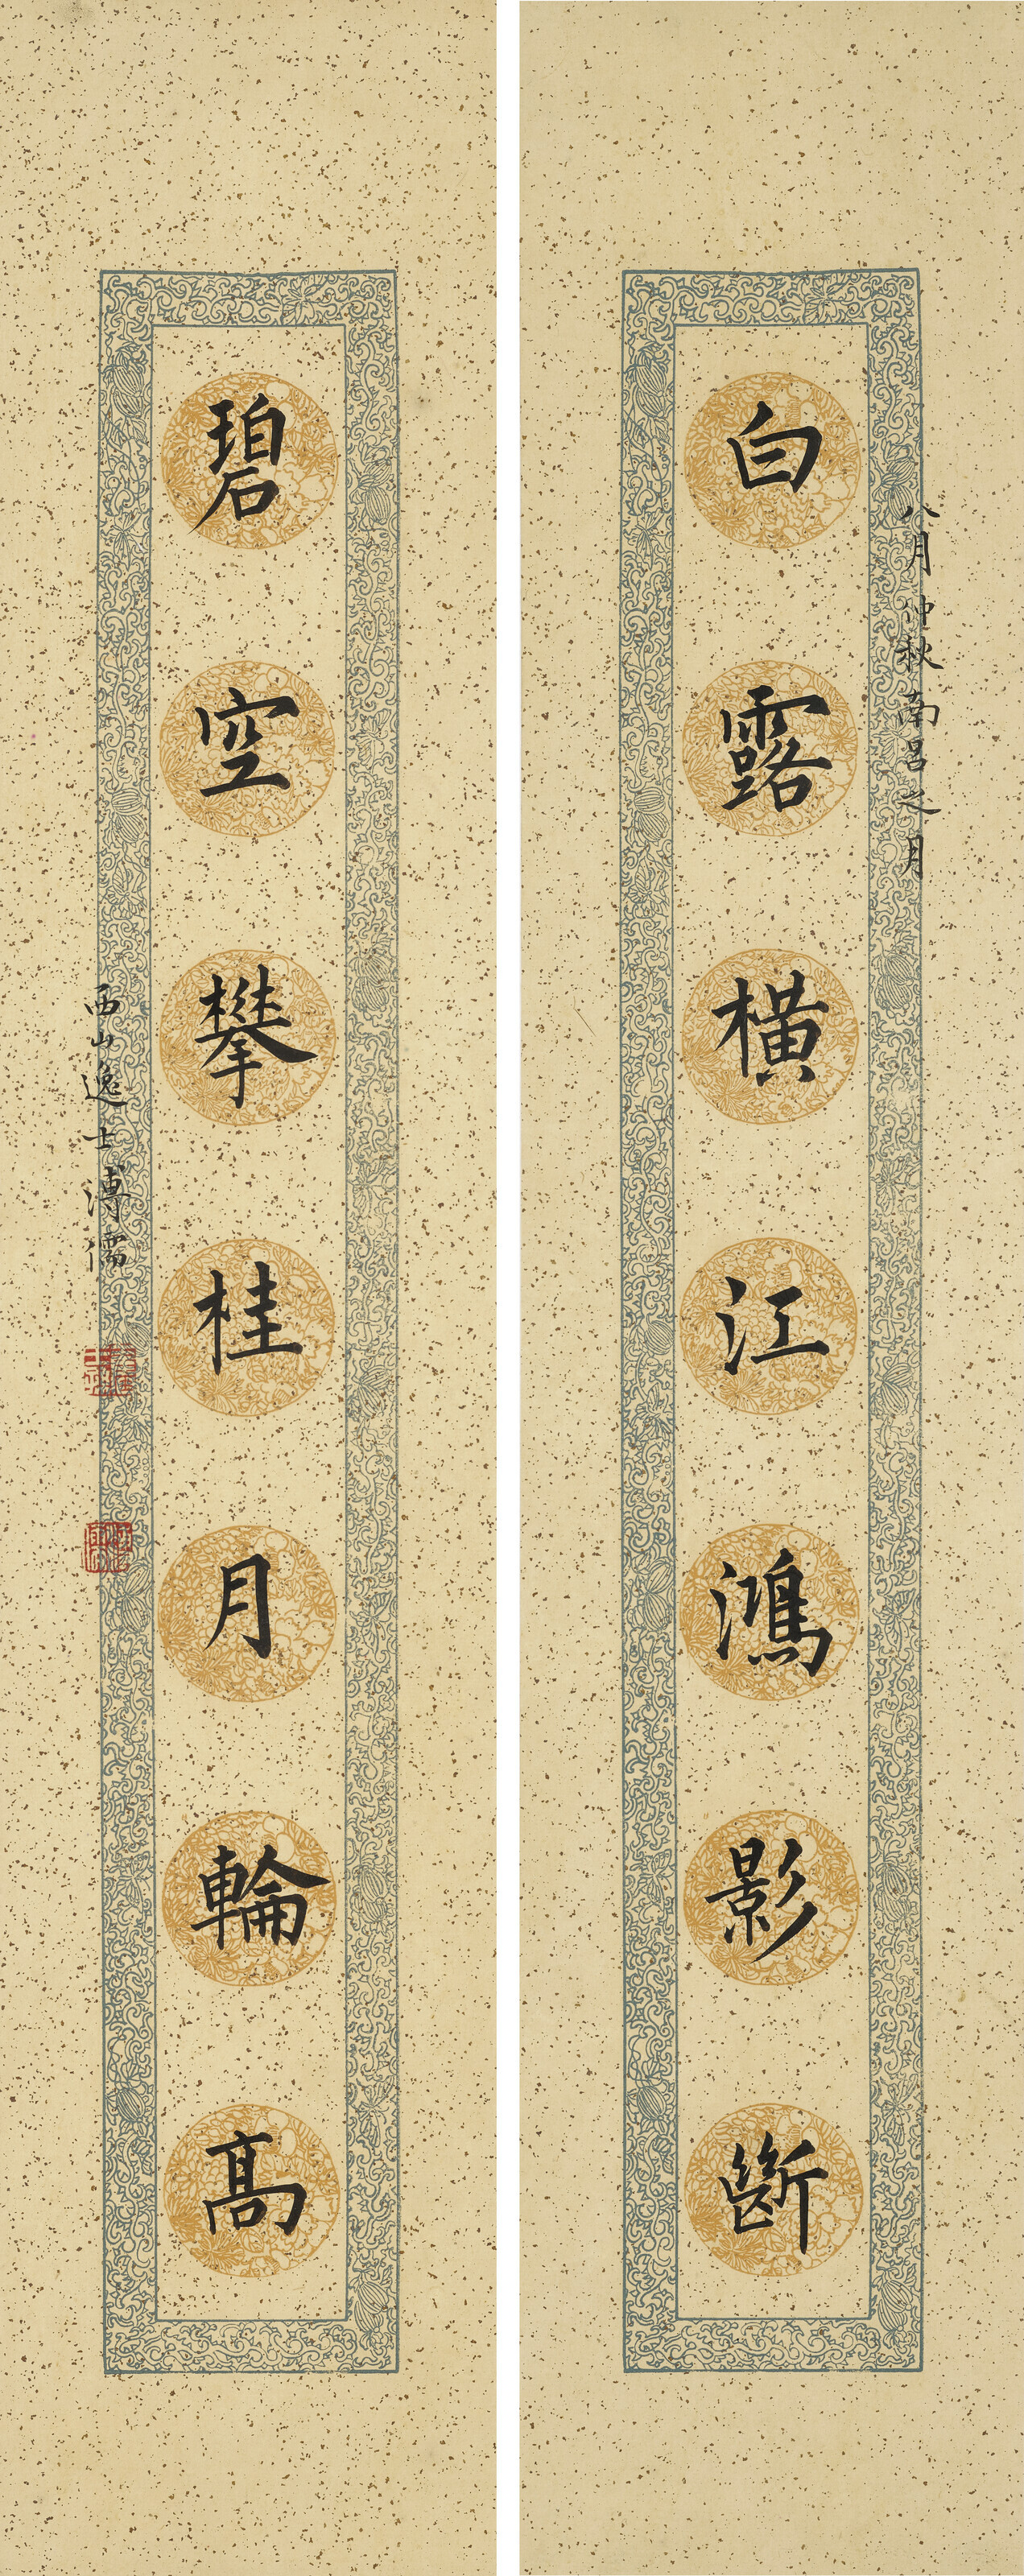 八月仲秋南呂之月
白露橫江鴻影斷
碧空攀桂月輪高
西山逸士溥儒